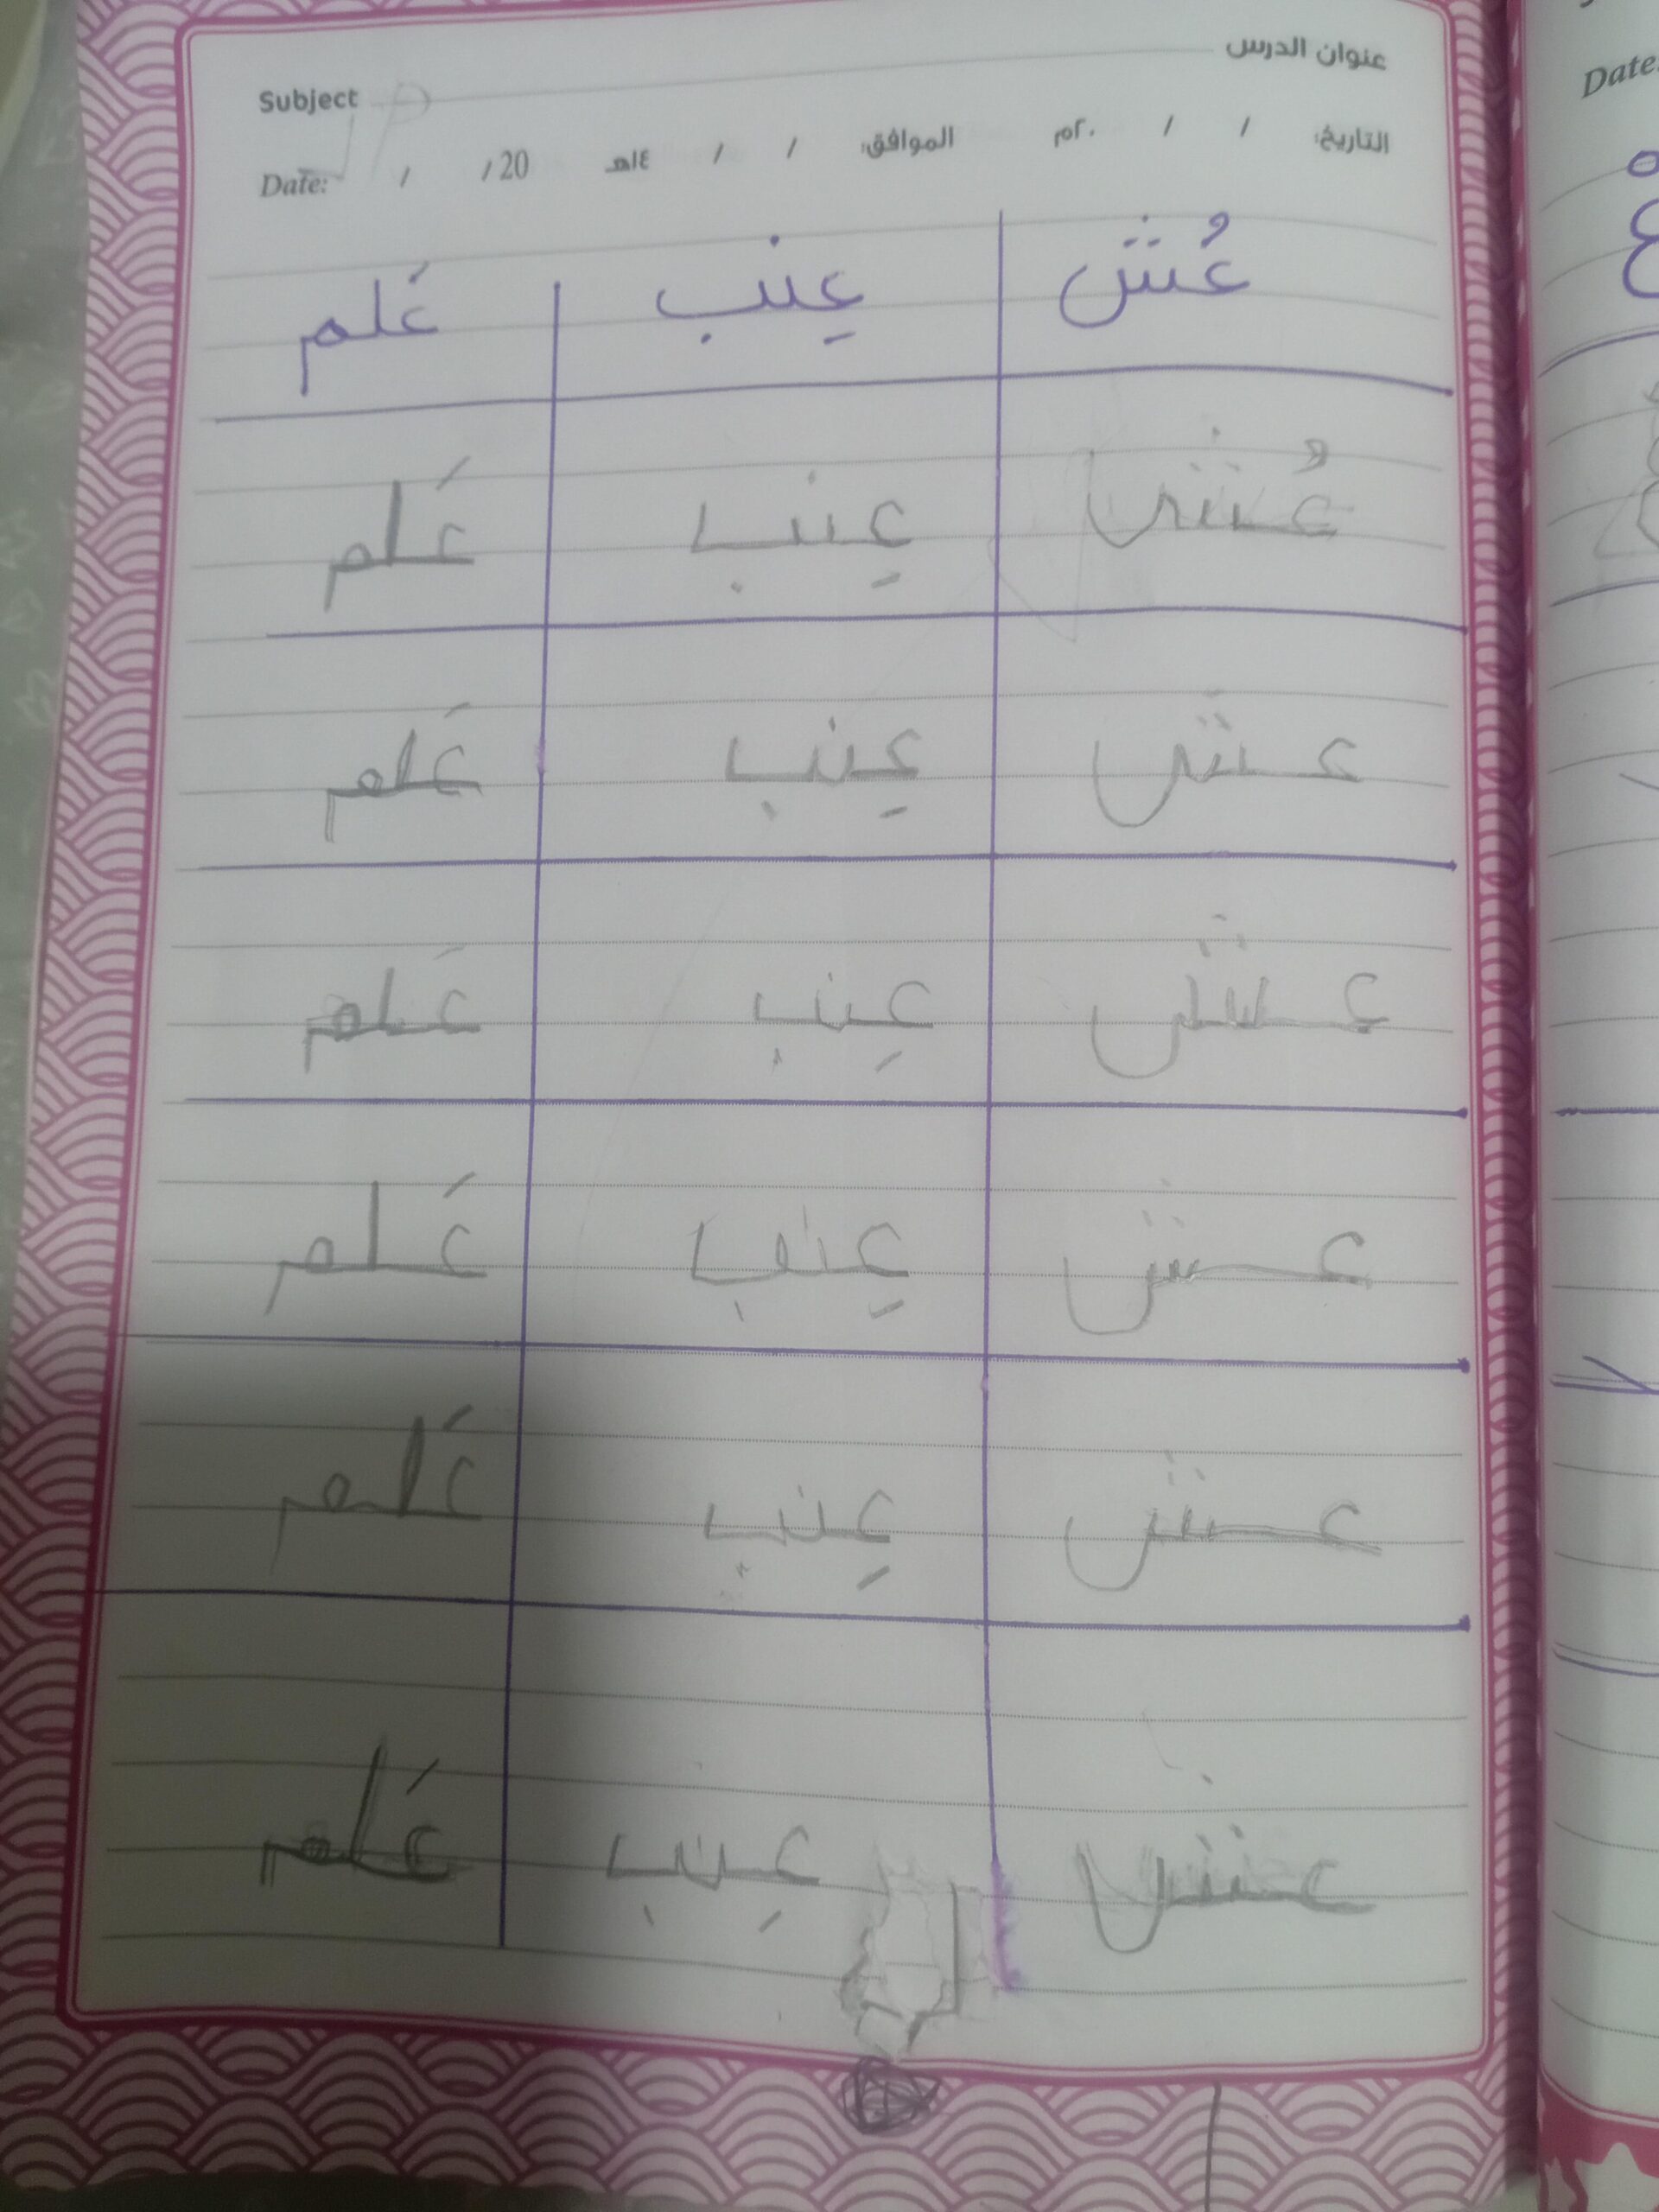 عنوان الدرس
Subject
التاريخ: / / ٢٠م الموافق: / / ١٤هـ Date: / / 20
عُش عِنب عَلم
عُش عِنب عَلم
عش عِنب عَلم
عش عِنب عَلم
عش عِنب عَلم
عش عِنب عَلم
عش عِنب عَلم
Date: